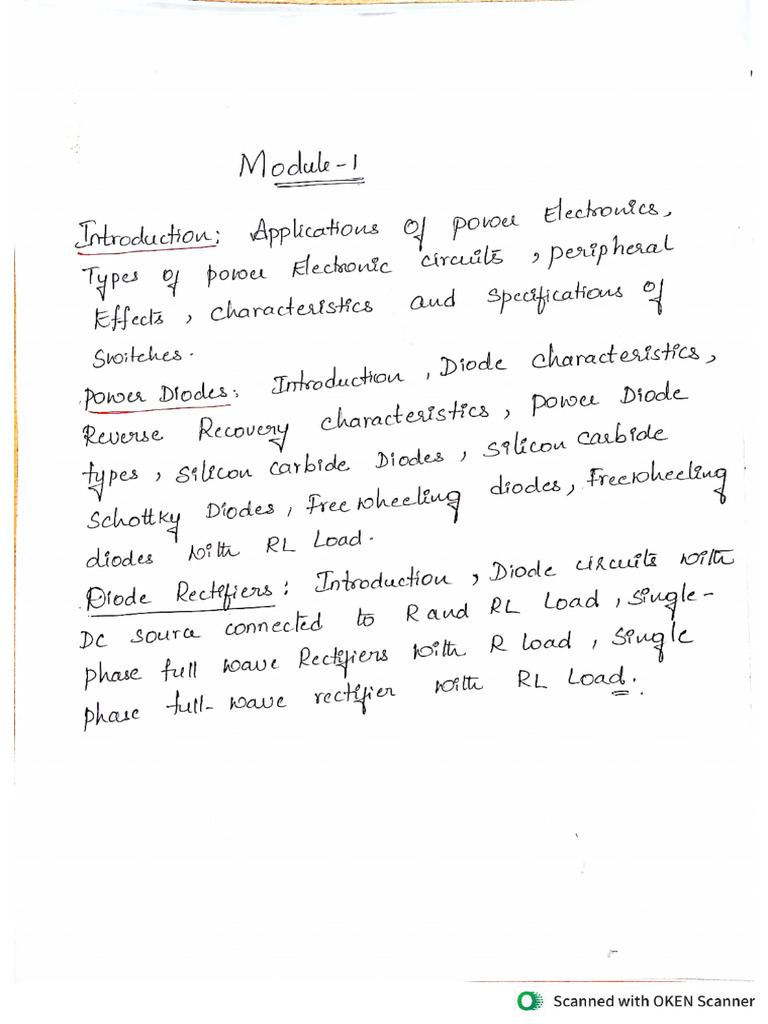 Module-1
Introduction: Applications of power Electronics,
Types of power Electronic circuits, peripheral
Effects, characteristics and specifications of
Switches.
Power Diodes: Introduction, Diode characteristics,
Reverse Recovery characteristics, power Diode
types, Silicon carbide Diodes, Silicon carbide
Schottky Diodes, Freewheeling diodes, Freewheeling
diodes with RL Load.
Diode Rectifiers: Introduction, Diode circuits with
DC source connected to R and RL Load, Single-
phase full wave Rectifiers with R load, Single
phase full-wave rectifier with RL Load.
Scanned with OKEN Scanner